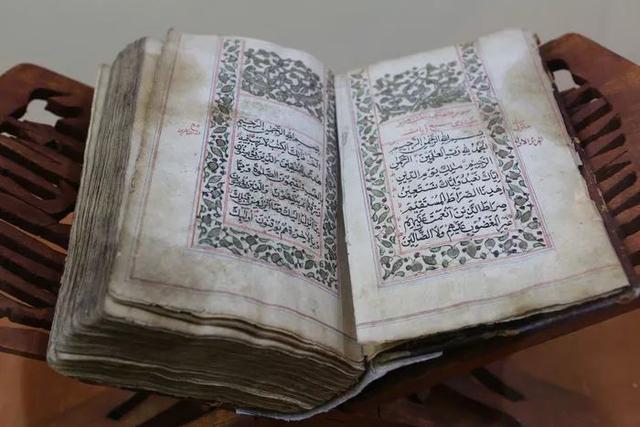 بِسْمِ اللهِ الرَّحْمٰنِ الرَّحِيمِ
اَلْحَمْدُ لِلهِ رَبِّ الْعَالَمِينَ الرَّحْمٰنِ
الرَّحِيمِ مٰلِكِ يَوْمِ الدِّينِ
اِيَّاكَ نَعْبُدُ وَاِيَّاكَ نَسْتَعِينُ
اِهْدِنَا الصِّرَاطَ الْمُسْتَقِيمَ
صِرَاطَ الَّذِينَ اَنْعَمْتَ عَلَيْهِمْ
غَيْرِ الْمَغْضُوبِ عَلَيْهِمْ وَلَا الضَّالِّينَ
بِسْمِ اللهِ الرَّحْمٰنِ الرَّحِيمِ
الم ذٰلِكَ الْكِتٰبُ لَا رَيْبَ
فِيهِ هُدًى لِلْمُتَّقِينَ الَّذِينَ يُؤْمِنُونَ
بِالْغَيْبِ وَيُقِيمُونَ الصَّلٰوةَ وَمِمَّا
رَزَقْنٰهُمْ يُنْفِقُونَ وَالَّذِينَ يُؤْمِنُونَ
بِمَا اُنْزِلَ اِلَيْكَ وَمَا اُنْزِلَ مِنْ قَبْلِكَ
وَبِالْاٰخِرَةِ هُمْ يُوقِنُونَ اُولٰئِكَ